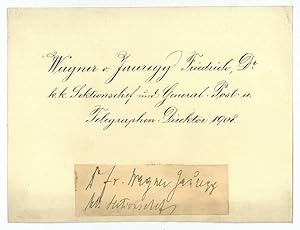 Wagner v. Jauregg Friedrich, Dr
k.k. Sektionschef und General-Post u.
Telegraphen-Direktor 1908.
Dr Fr. Wagner Jauregg
kk Sektionschef